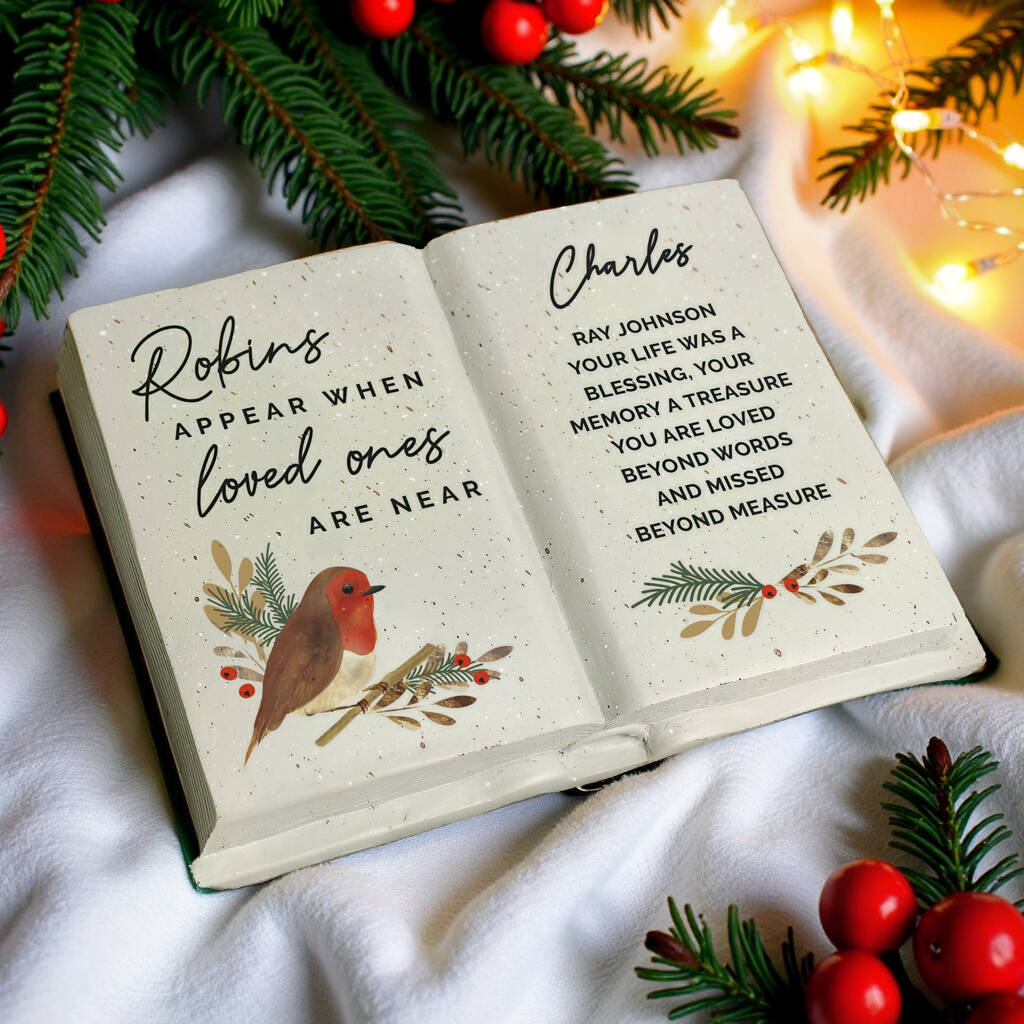 Robins
APPEAR WHEN
loved ones
ARE NEAR
Charles
RAY JOHNSON
YOUR LIFE WAS A
BLESSING, YOUR
MEMORY A TREASURE
YOU ARE LOVED
BEYOND WORDS
AND MISSED
BEYOND MEASURE